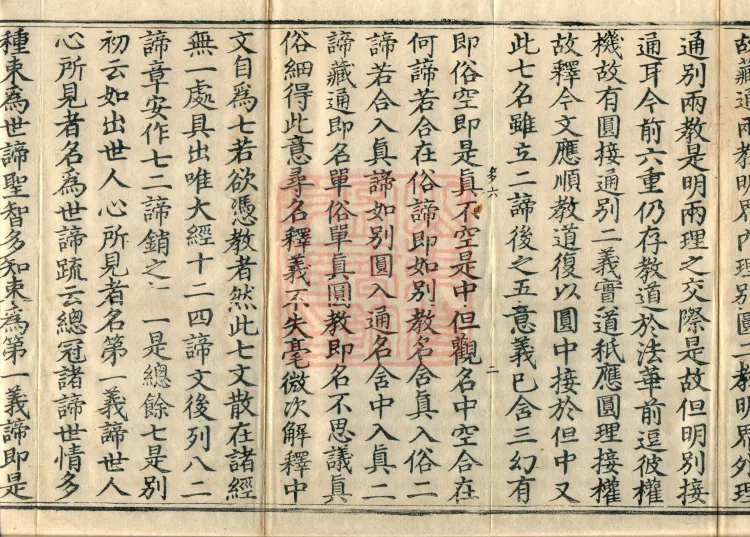 故藏通兩教明界內理別圓二教明界外理
通別兩教是明兩理之交際是故但明別接
通耳今前六重仍存教道於法華前逗彼權
機故有圓接通別二義實道秖應圓理接權
故釋今文應順教道復以圓中接於但中又
此七名雖立二諦後之五意義已含三幻有
多六
二
即俗空即是真不空是中但觀名中空合在
何諦若合在俗諦即如別教名含真入俗二
諦若合入真諦如別圓入通名含中入真二
諦藏通即名單俗單真圓教即名不思議真
俗細得此意尋名釋義不失毫微次解釋中
文自為七若欲憑教者然此七文散在諸經
無一處具出唯大經十二四諦文後列八二
諦章安作七二諦銷之一是總餘七是別
初云如出世人心所見者名第一義諦世人
心所見者名為世諦疏云總冠諸諦世情多
種束為世諦聖智多知束為第一義諦即是